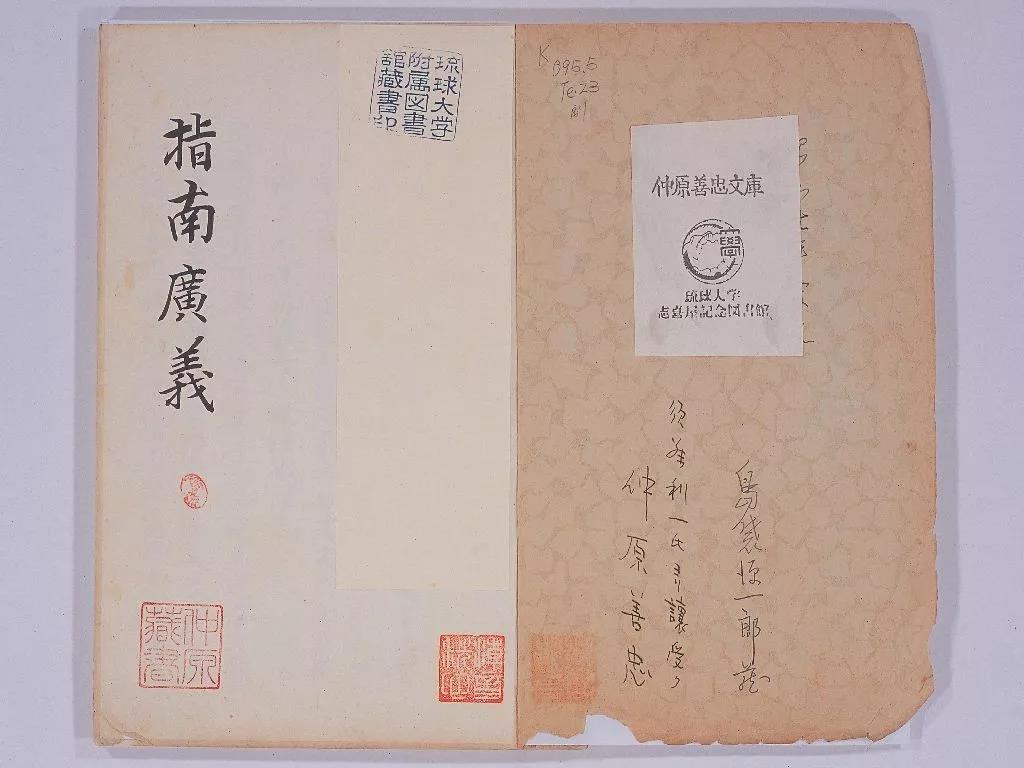 K
095.5
Te.23
仲原善忠文庫
琉球大学
志喜屋記念図書館
島袋源一郎蔵
須藤利一氏ヨリ讓受ク
仲原善忠
琉球大学
附属図書
館蔵書印
指南廣義
仲原
藏書